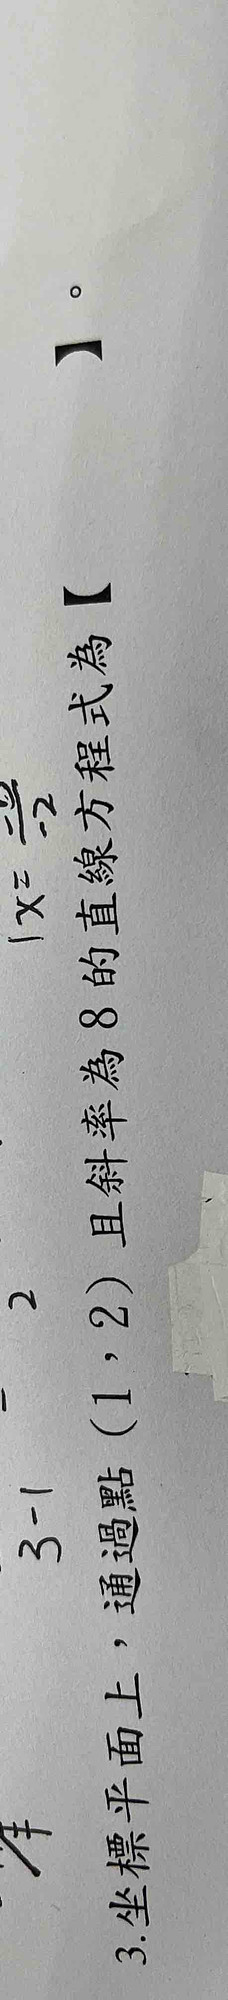 3-1 2 1x=
-2
3.坐標平面上，通過點(1，2)且斜率為8的直線方程式為【 】。